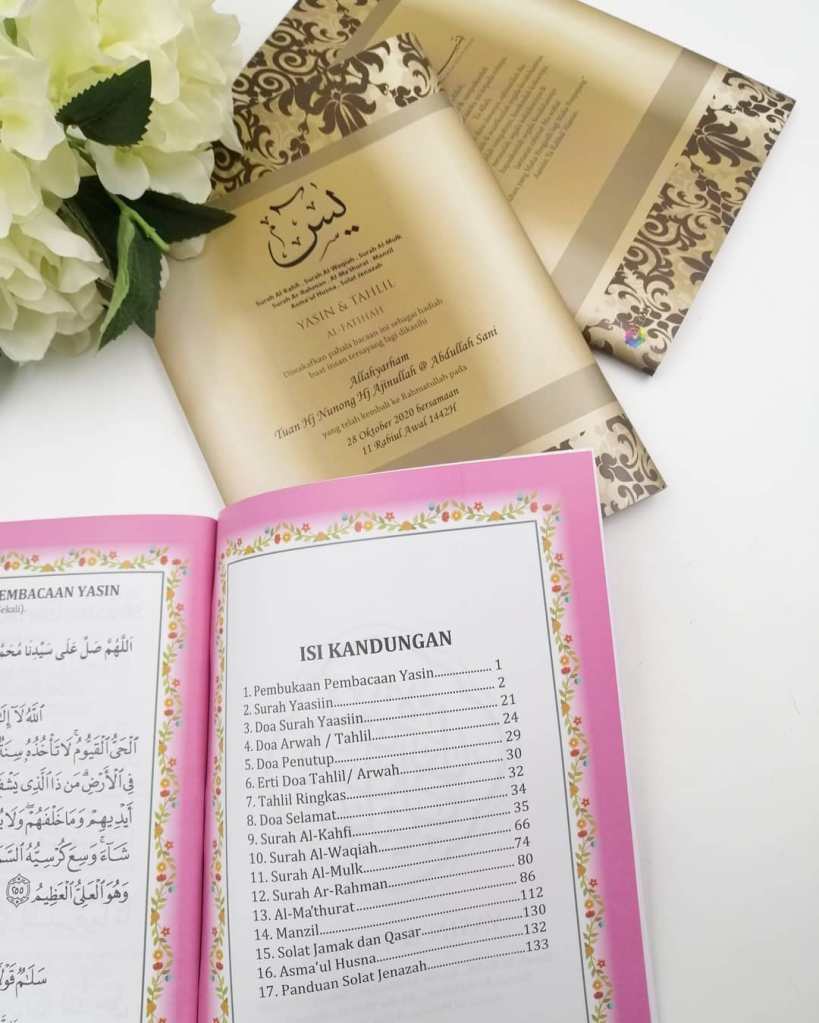 يس
Surah Al-Kahfi . Surah Al-Waqiah . Surah Al-Mulk
Surah Ar-Rahman . Al-Ma'thurat . Manzil
Asma'ul Husna . Solat Jenazah
YASIN & TAHLIL
AL-FATIHAH
Diwakafkan pahala bacaan ini sebagai hadiah
buat insan tersayang lagi dikasihi
Allahyarham
Tuan Hj Nunong Hj Ajinullah @ Abdullah Sani
yang telah kembali ke Rahmatullah pada
28 Oktober 2020 bersamaan
11 Rabiul Awal 1442H
EMBACAAN YASIN
ekali).
اَللّٰهُمَّ صَلِّ عَلَى سَيِّدِنَا مُحَمَّ
اللَّهُ لَا إِلَ
الْحَيُّ الْقَيُّومُ لَا تَأْخُذُهُ سِنَةٌ
فِي الْأَرْضِ مَن ذَا الَّذِي يَشْفَ
أَيْدِيهِمْ وَمَا خَلْفَهُمْ وَلَا يُ
شَاءَ وَسِعَ كُرْسِيُّهُ السَّمَ
وَهُوَ الْعَلِيُّ الْعَظِيمُ ٢٥٥
سَلَامٌ قَوْلً
ISI KANDUNGAN
1. Pembukaan Pembacaan Yasin.................. 1
2. Surah Yaasiin................................................ 2
3. Doa Surah Yaasiin........................................ 21
4. Doa Arwah / Tahlil..................................... 24
5. Doa Penutup................................................ 29
6. Erti Doa Tahlil/ Arwah............................. 30
7. Tahlil Ringkas............................................. 32
8. Doa Selamat................................................ 34
9. Surah Al-Kahfi............................................ 35
10. Surah Al-Waqiah...................................... 66
11. Surah Al-Mulk...........................................74
12. Surah Ar-Rahman..................................... 80
13. Al-Ma'thurat............................................. 86
14. Manzil........................................................112
15. Solat Jamak dan Qasar............................130
16. Asma'ul Husna.........................................132
17. Panduan Solat Jenazah...........................133